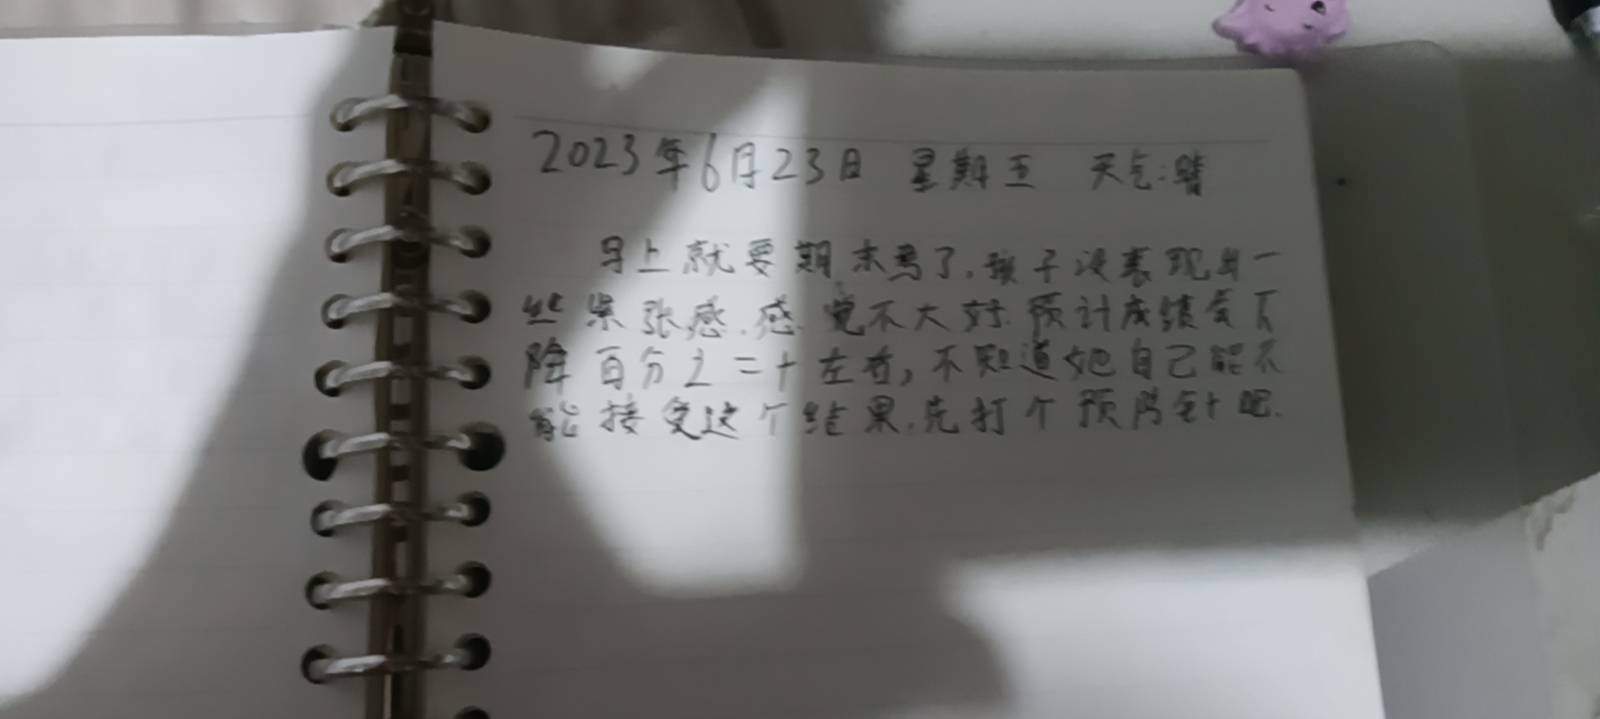 2023年6月23日 星期五 天气:晴
马上就要期末考了,孩子没表现出一
丝紧张感.感觉不大好.预计成绩会下
降百分之二十左右,不知道她自己能不
能接受这个结果.先打个预防针吧.